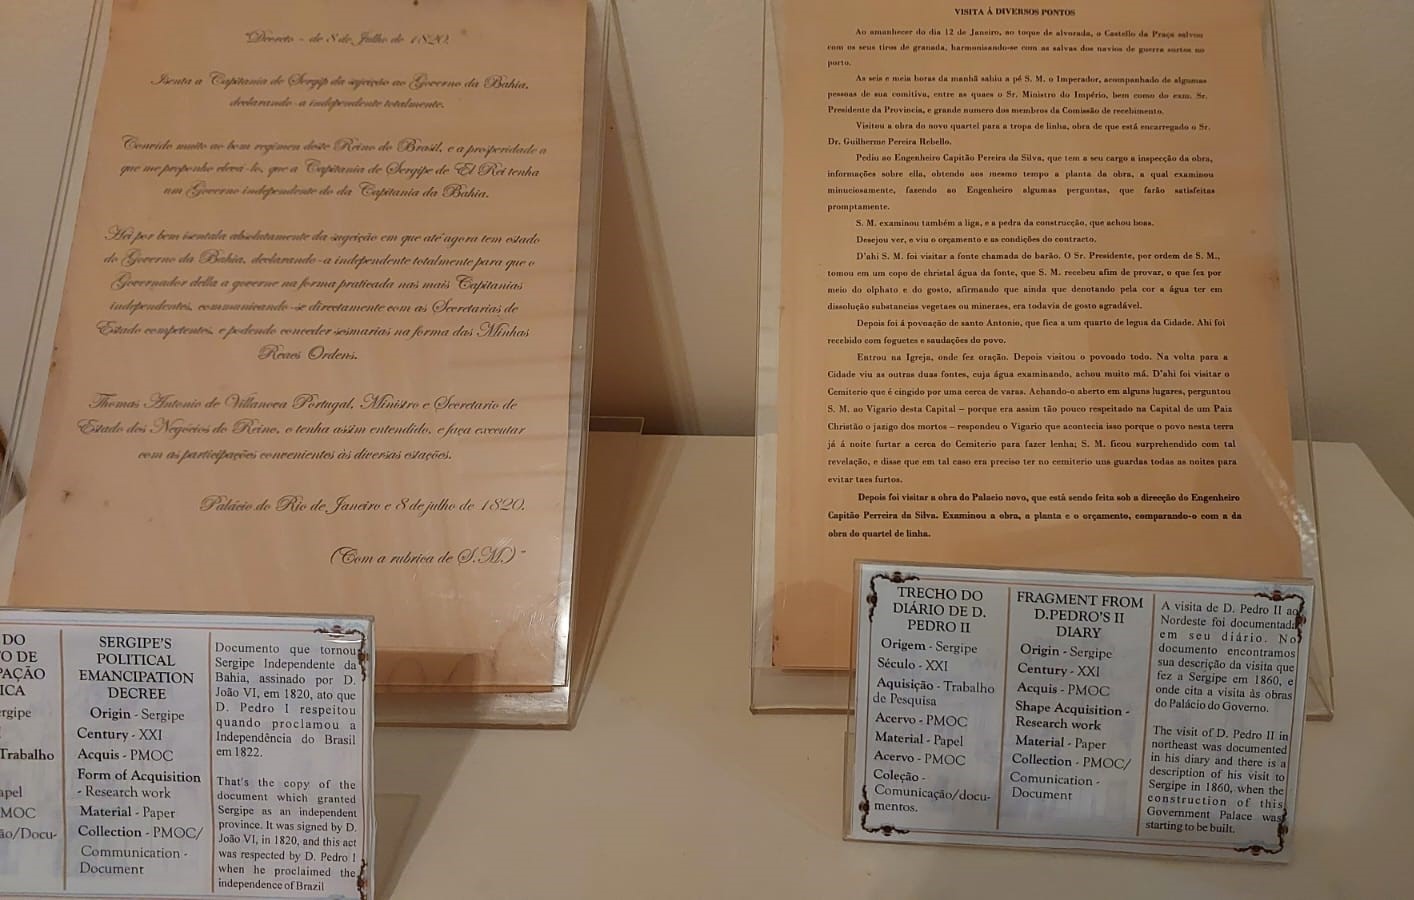 "Decreto - de 8 de Julho de 1820.
Isenta a Capitania de Sergip da sugeição ao Governo da Bahia,
declarando-a independente totalmente.
Convido muito ao bom regimen deste Reino do Brasil, e a prosperidade a
que me proponho elevá-lo, que a Capitania de Sergipe de El Rei tenha
um Governo independente do da Capitania da Bahia.
Hei por bem isentala absolutamente da sugeição em que até agora tem estado
do Governo da Bahia, declarando-a independente totalmente para que o
Governador della a governe na forma praticada nas mais Capitanias
independentes, communicando-se directamente com as Secretarias de
Estado competentes, e podendo conceder sesmarias na forma das Minhas
Reaes Ordens.
Thomas Antonio de Villanova Portugal, Ministro e Secretario de
Estado dos Negócios do Reino, o tenha assim entendido, e faça executar
com as participações convenientes às diversas estações.
Palácio do Rio de Janeiro e 8 de julho de 1820.
(Com a rubrica de S.M.)"
DO
O DE
PAÇÃO
ICA
ergipe
I
Trabalho
apel
MOC
ão/Docu-
SERGIPE'S
POLITICAL
EMANCIPATION
DECREE
Origin - Sergipe
Century - XXI
Acquis - PMOC
Form of Acquisition
- Research work
Material - Paper
Collection - PMOC/
Communication -
Document
Documento que tornou
Sergipe Independente da
Bahia, assinado por D.
João VI, em 1820, ato que
D. Pedro I respeitou
quando proclamou a
Independência do Brasil
em 1822.
That's the copy of the
document which granted
Sergipe as an independent
province. It was signed by D.
João VI, in 1820, and this act
was respected by D. Pedro I
when he proclaimed the
independence of Brazil
VISITA Á DIVERSOS PONTOS
Ao amanhecer do dia 12 de Janeiro, ao toque de alvorada, o Castello da Praça salvou
com os seus tiros de granada, harmonisando-se com as salvas dos navios de guerra surtos no
porto.
As seis e meia horas da manhã sahiu a pé S. M. o Imperador, acompanhado de algumas
pessoas de sua comitiva, entre as quaes o Sr. Ministro do Império, bem como do exm. Sr.
Presidente da Provincia, e grande numero dos membros da Comissão de recebimento.
Visitou a obra do novo quartel para a tropa de linha, obra de que está encarregado o Sr.
Dr. Guilherme Pereira Rebello.
Pediu ao Engenheiro Capitão Pereira da Silva, que tem a seu cargo a inspecção da obra,
informações sobre ella, obtendo aos mesmo tempo a planta da obra, a qual examinou
minuciosamente, fazendo ao Engenheiro algumas perguntas, que farão satisfeitas
promptamente.
S. M. examinou também a liga, e a pedra da construcção, que achou boas.
Desejou ver, e viu o orçamento e as condições do contracto.
D'ahi S. M. foi visitar a fonte chamada do barão. O Sr. Presidente, por ordem de S. M.,
tomou em um copo de christal água da fonte, que S. M. recebeu afim de provar, o que fez por
meio do olphato e do gosto, afirmando que ainda que denotando pela cor a água ter em
dissolução substancias vegetaes ou mineraes, era todavia de gosto agradável.
Depois foi á povoação de santo Antonio, que fica a um quarto de legua da Cidade. Ahi foi
recebido com foguetes e saudações do povo.
Entrou na Igreja, onde fez oração. Depois visitou o povoado todo. Na volta para a
Cidade viu as outras duas fontes, cuja água examinando, achou muito má. D'ahi foi visitar o
Cemiterio que é cingido por uma cerca de varas. Achando-o aberto em alguns lugares, perguntou
S. M. ao Vigario desta Capital – porque era assim tão pouco respeitado na Capital de um Paiz
Christão o jazigo dos mortos – respondeu o Vigario que acontecia isso porque o povo nesta terra
já á noite furtar a cerca do Cemiterio para fazer lenha; S. M. ficou surprehendido com tal
revelação, e disse que em tal caso era preciso ter no cemiterio uns guardas todas as noites para
evitar taes furtos.
Depois foi visitar a obra do Palacio novo, que está sendo feita sob a direcção do Engenheiro
Capitão Perreira da Silva. Examinou a obra, a planta e o orçamento, comparando-o com a da
obra do quartel de linha.
TRECHO DO
DIÁRIO DE D.
PEDRO II
Origem - Sergipe
Século - XXI
Aquisição - Trabalho
de Pesquisa
Acervo - PMOC
Material - Papel
Acervo - PMOC
Coleção -
Comunicação/docu-
mentos.
FRAGMENT FROM
D.PEDRO'S II
DIARY
Origin - Sergipe
Century - XXI
Acquis - PMOC
Shape Acquisition -
Research work
Material - Paper
Collection - PMOC/
Comunication -
Document
A visita de D. Pedro II ao
Nordeste foi documentada
em seu diário. No
documento encontramos
sua descrição da visita que
fez a Sergipe em 1860, e
onde cita a visita às obras
do Palácio do Governo.
The visit of D. Pedro II in
northeast was documented
in his diary and there is a
description of his visit to
Sergipe in 1860, when the
construction of this
Government Palace was
starting to be built.